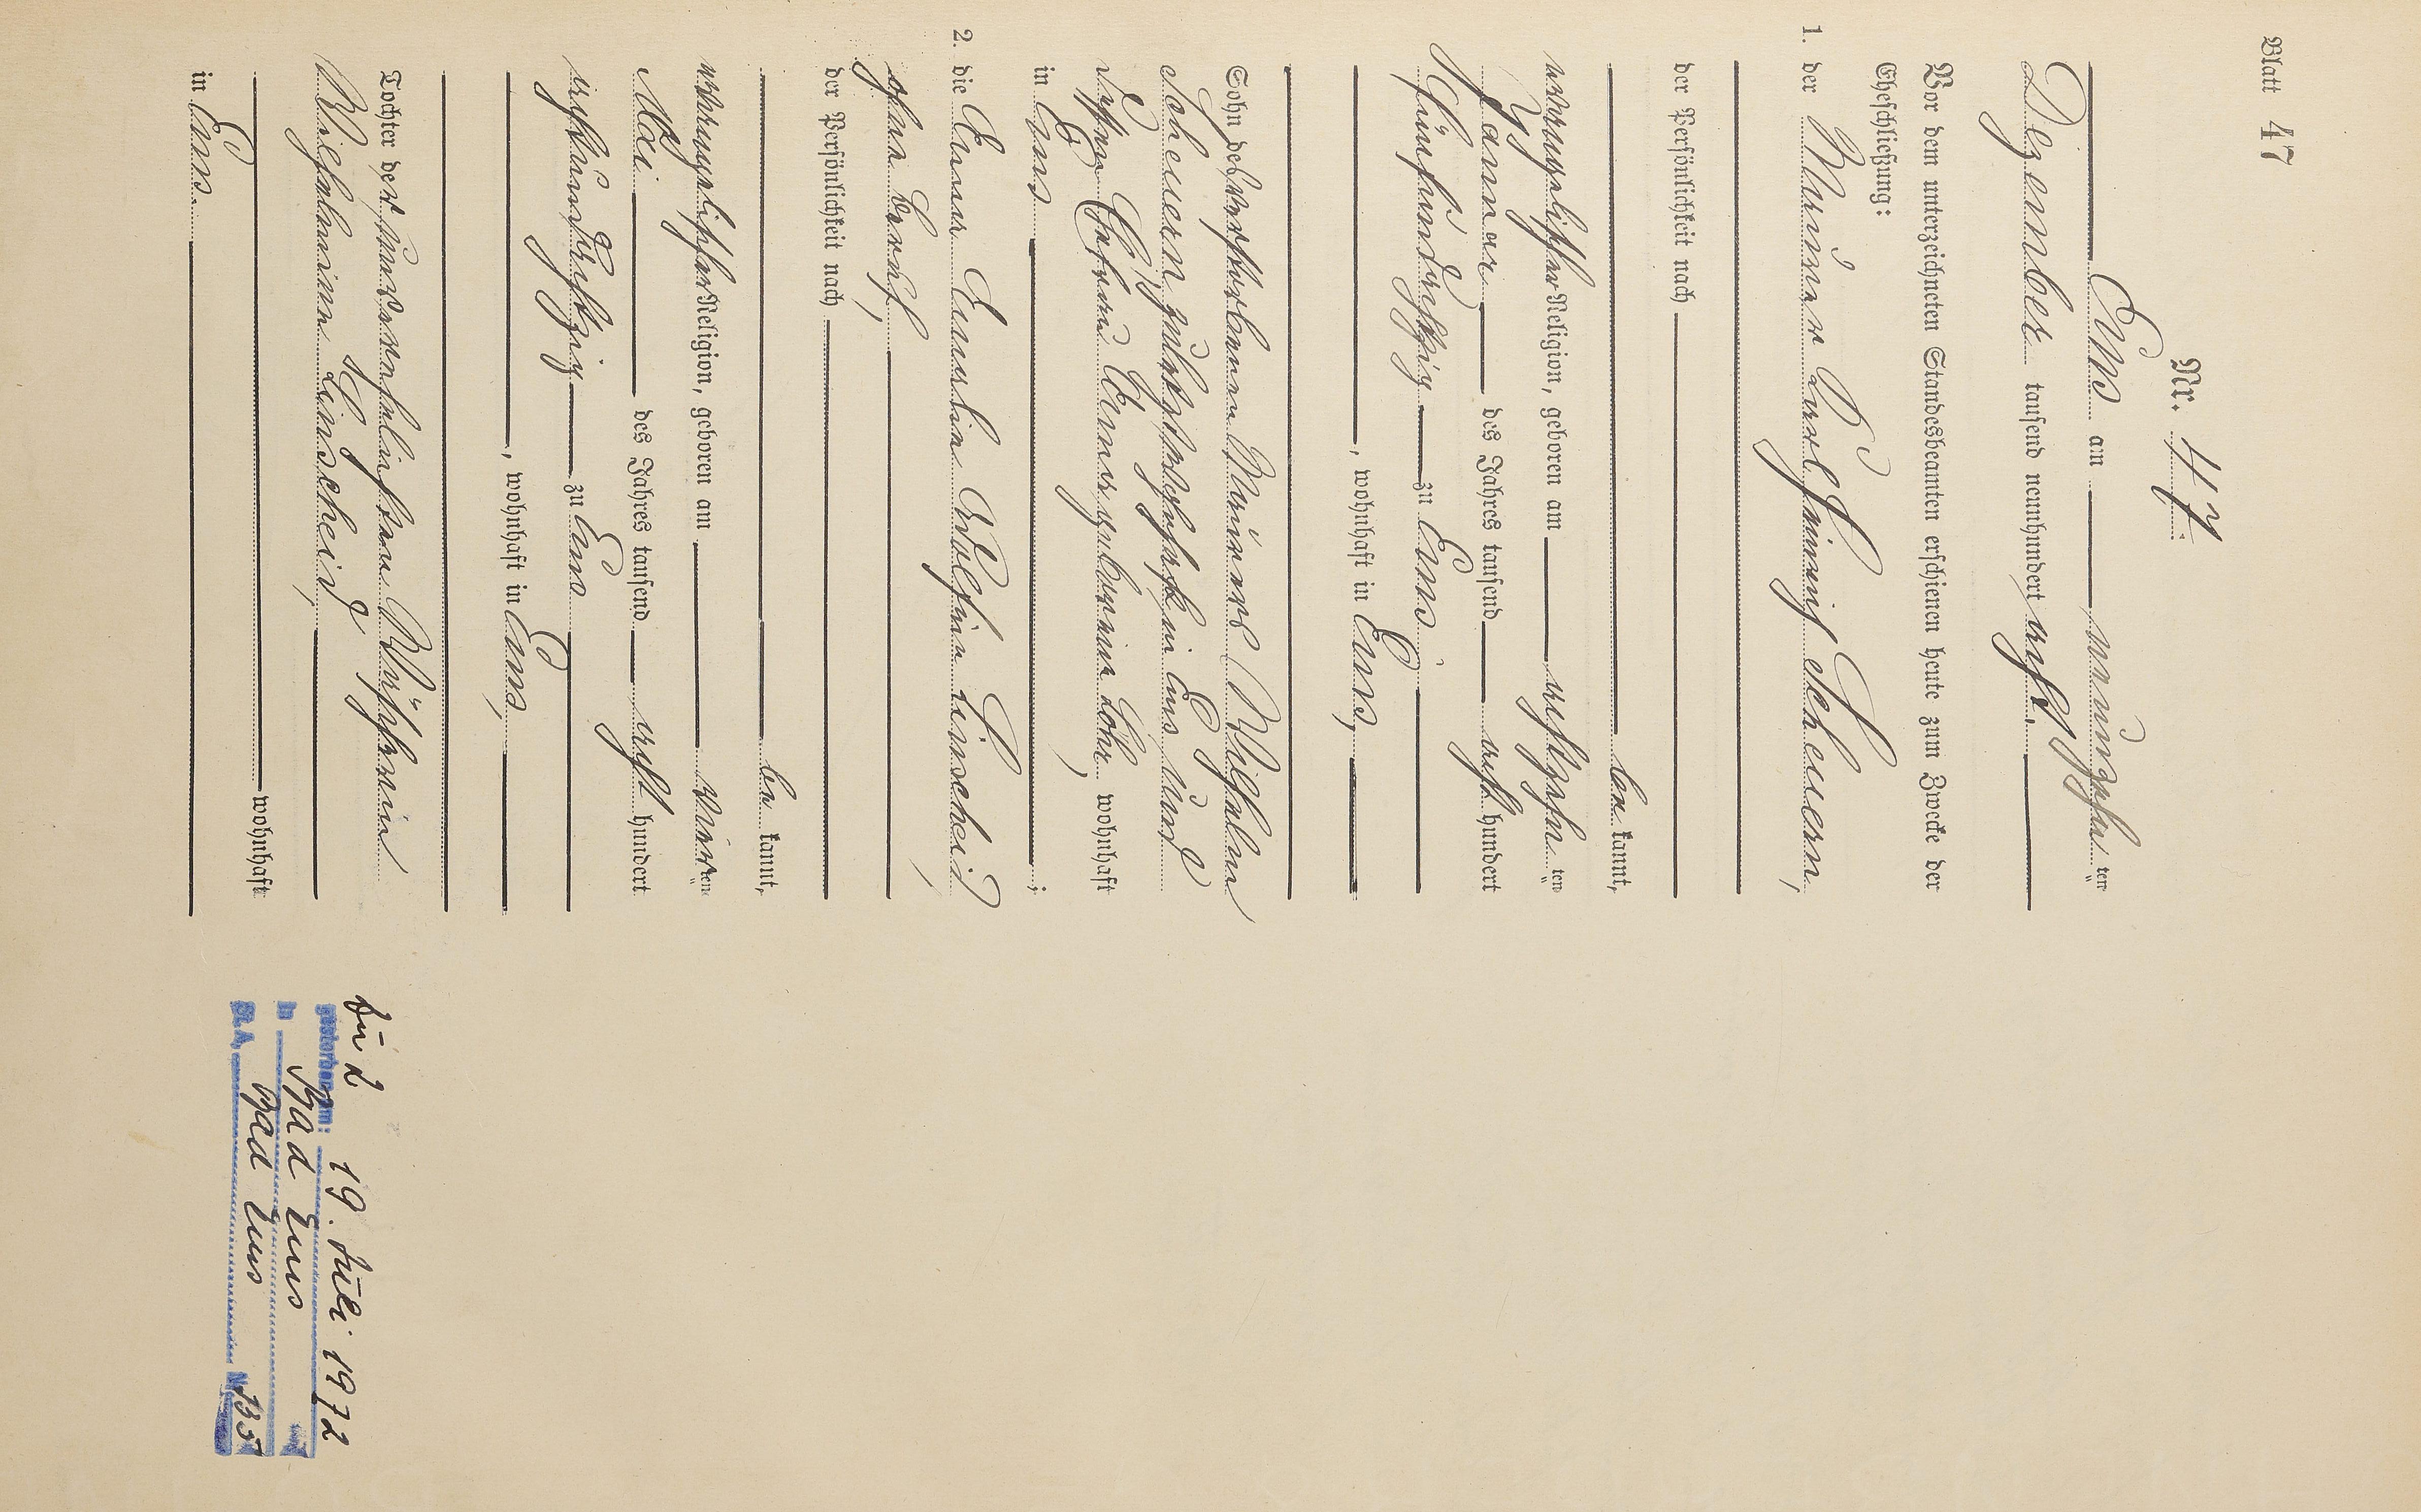 Blatt 47
Nr. 47.
Ems am neunzehnten
Dezember tausend neunhundert acht.
Vor dem unterzeichneten Standesbeamten erschienen heute zum Zwecke der
Eheschließung:
1. der Maurer Karl Scheuern,
der Persönlichkeit nach
be kannt,
evangelischer Religion, geboren am achtzehnten
Januar des Jahres tausend acht hundert
fünfundachtzig zu Ems
, wohnhaft in Ems,
Sohn des verstorbenen Maurers Wilhelm
Scheuern, zuletzt wohnhaft in Ems, und
dessen Ehefrau geborenen Löhr, wohnhaft
in Ems ;
2. die Emma Emilie Linscheid,
ohne Beruf,
der Persönlichkeit nach
be kannt,
evangelischer Religion, geboren am neunten
Mai des Jahres tausend acht hundert
achtundachtzig zu Ems
, wohnhaft in Ems,
Tochter der unverehelichten Wäscherin
Wilhelmine Linscheid,
wohnhaft
in Ems.
zu 2
gestorben am: 19. Juli 1972
in Bad Ems
St.A. Bad Ems Nr. 135